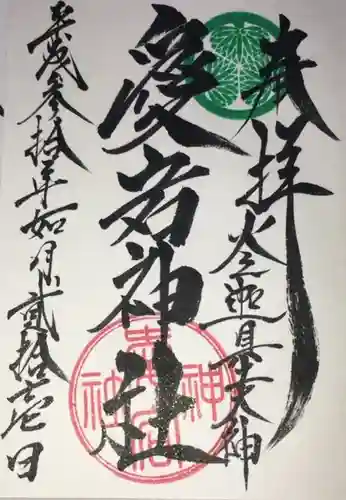 奉拝
火之迦具土大神
愛宕神社
平成参拾年如月貮拾壱日
愛宕神社